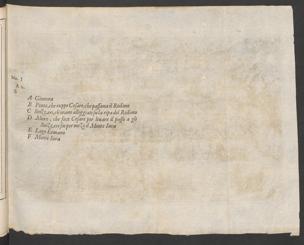 A Gineura
B Ponte, che ruppe Cesare, che passaua il Rodano
C Suizzari, ch'erano alloggiati su la ripa del Rodano
D Muro, che fece Cesare per leuare il passo a gli
Suizzari su per mezo il Monte Iura
E Lago Lemano
F Monte Iura